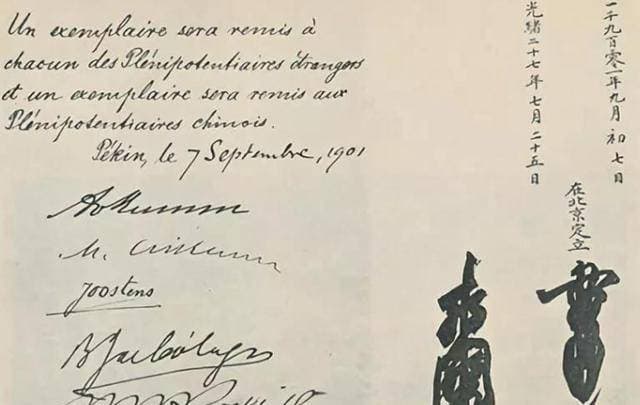 Un exemplaire sera remis à
chacun des Plénipotentiaires étrangers
et un exemplaire sera remis aux
Plénipotentiaires chinois.
Pékin, le 7 Septembre, 1901
Joostens
一千九百零一年九月初七日
光緒二十七年七月二十五日
在北京定立